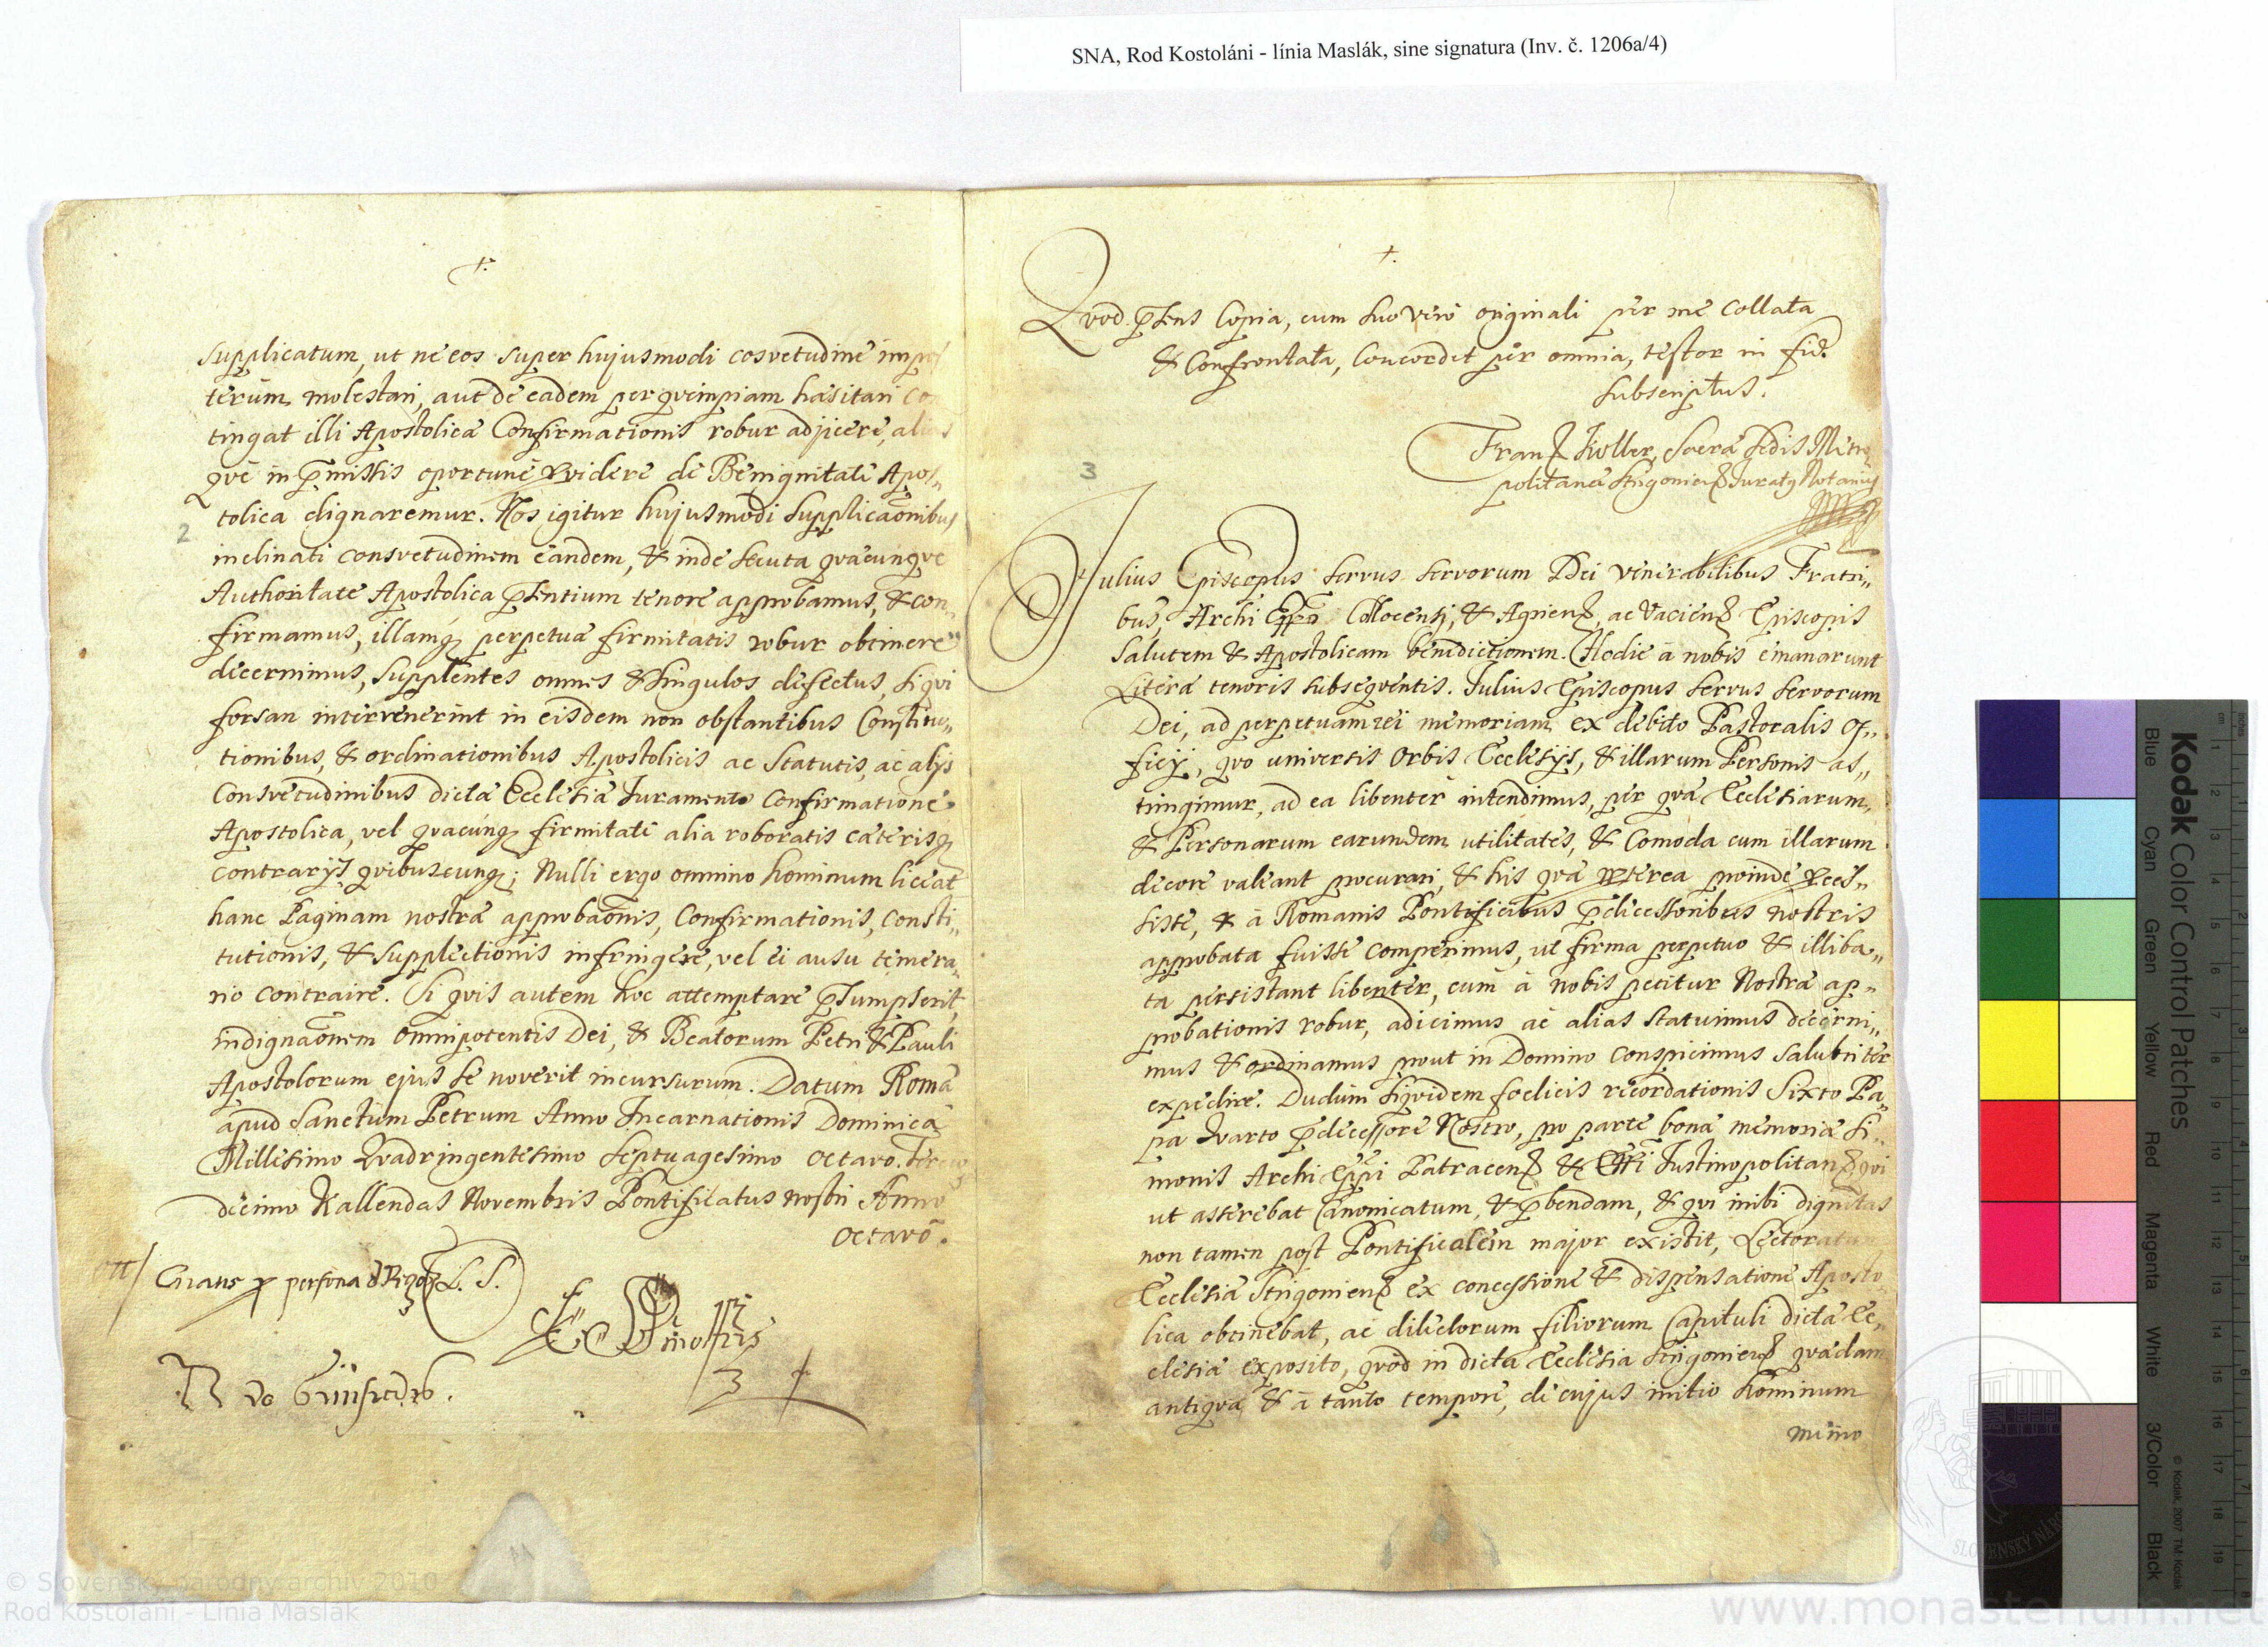 SNA, Rod Kostoláni - línia Maslák, sine signatura (Inv. č. 1206a/4)
supplicatum, ut ne eos super hujusmodi cosvetudine impos
terúm molestari, aut de eadem per qvempiam hæsitari con
tingat illi Apostolicæ Confirmationis robur adjicere, alias
qve in p̄missis oportune providere de Benignitate Apos„
tolica dignaremur. Nos igitur hujusmodi supplicaõnibus
inclinati consvetudinem eandem, & inde secuta qvæcunqve
Authoritate Apostolica p̄sentium tenore approbamus, & con„
firmamus, illamq perpetuæ firmitatis robur obtinere
decernimus, supplentes omnes & singulos defectus, si qvi
forsan intervenerint in eisdem non obstantibus Constitu„
tionibus, & ordinationibus Apostolicis ac Statutis, ac alijs
Consvetudinibus dictæ Ecclesiæ Juramento Confirmatione
Apostolica, vel qvacunq firmitate alia roboratis cæterisq
contrarijs qvibuscunq; Nulli ergo omnino hominum liceat
hanc Paginam nostræ approbaõnis, Confirmationis, consti„
tutionis, & supplectionis infringere, vel ei ausu temera„
rio contraire. Si qvis autem hoc attemptare p̄sumpserit,
indignaõnem omnipotentis Dei, & Beatorum Petri & Pauli
Apostolorum ejus se noverit incursurum. Datum Romæ
apud Sanctum Petrum Anno Incarnationis Dominicæ
Millesimo Qvadringentesimo Septuagesimo octavo. Tertio
decimo Kallendas Novembris Pontificatus nostri Anno
octavo.
L. S.
2
Qvod p̄sens Copia, cum suo vero originali per me collata
& Confrontata, Concordet per omnia, testor in fide
subscriptus.
Franz Koller, Sacræ Sedis Metro
politanæ Strigoniens Juratq Notarius
3
Julius Episcopus servus servorum Dei venerabilibus Fratri„
bus, Archi Eppo Collocensj, & Agriens, ac Vaciens Episcopis
Salutem & Apostolicam benedictionem. Hodie à nobis emanarunt
Literæ tenoris subseqventis. Julius Episcopus servus servorum
Dei, ad perpetuam rei memoriam, ex debito Pastoralis of„
ficij, qvo universis Orbis Ecclesijs, & illarum Personis as„
tringimur, ad ea libenter intendimus, per qvæ Ecclesiarum,
& Personarum earundem utilitates, & Comoda cum illarum
decore valeant procurari, & his qvæ propterea proinde proces„
sisse, & à Romanis Pontificibus p̄decessoribus nostris
approbata fuisse comperimus, ut firma perpetuo & illiba„
ta persistant libenter, cum à nobis petitur Nostræ ap„
probationis robur, adicimus ac alias statuimus decerni„
mus & ordinamus prout in Domino conspicimus salubriter
expedire. Dudum siqvidem foelicis recordationis Sixto Pa„
pa Qvarto p̄decessore Nostro, pro parte bonæ memoriæ Si„
monis Archi Eppi Patracens & Eppi Justinopolitans, qvi
ut asserebat Canonicatum, & p̄bendam, & qvi inibi dignitas
non tamen post Pontificalem major existit, Lectoratum
Ecclesiæ Strigoniens ex concessione & dispensatione Aposto„
lica obtinebat, ac dilectorum filiorum Capituli dictæ Ec„
clesiæ exposito, qvod in dicta Ecclesia Strigoniens qvædam
antiqva, & à tanto tempore, de cujus initio hominum
memo
© Slovenský národný archív 2010
Rod Kostoláni - Línia Maslák
www.monasterium.net
Kodak Color Control Patches
Blue Cyan Green Yellow Red Magenta White 3/Color Black
© Kodak, 2007 TM: Kodak